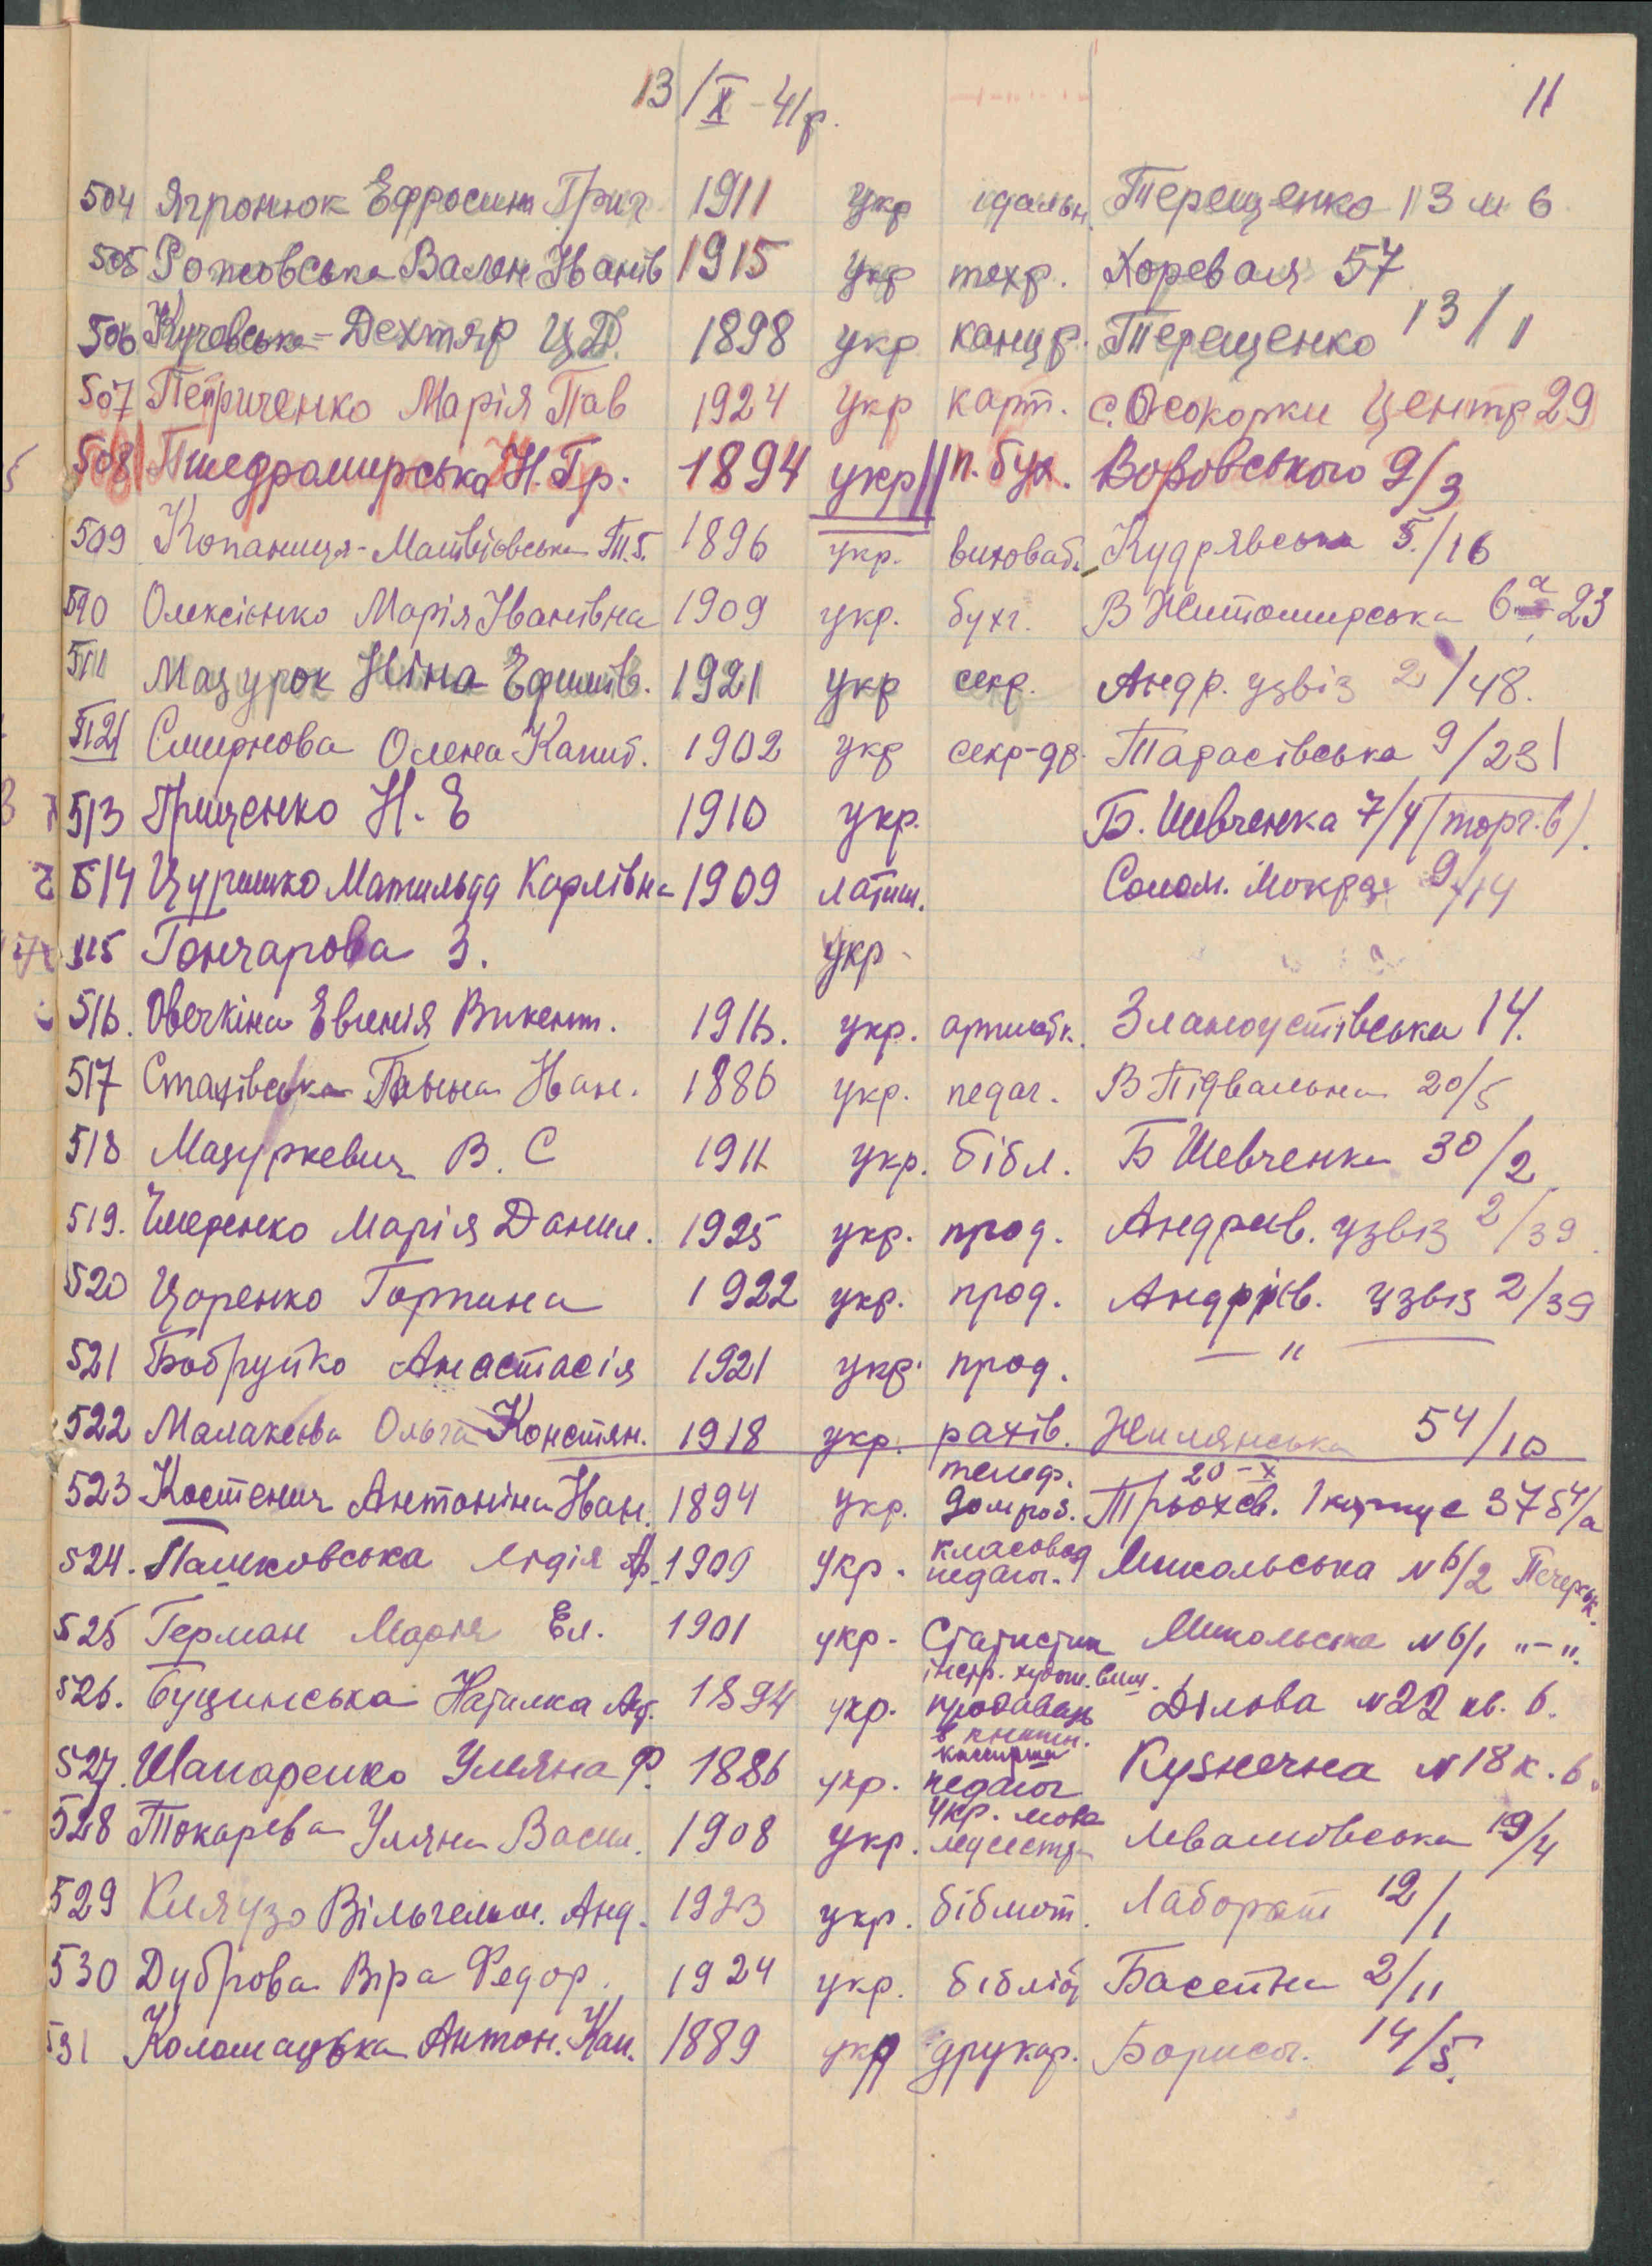 13/X-41р.
11
504 Ягронюк Ефросин Григ 1911 укр ідальн. Терещенко 13 м 6
505 Рожовська Вален Іванів 1915 укр техр. Хоревая 57
506 Кучевська-Дехтяр Ц.Д. 1898 укр канцр. Терещенко 13/1
507 Петриченко Марія Пав 1924 укр карт. с.Осокорки Центр 29
508 Пшедромирська Н. Гр. 1894 укр п. бух. Воровського 9/3
509 Копаниця-Матвіївська Т.Б. 1896 укр. виховат. Кудрявська 5/16
510 Олексієнко Марія Іванівна 1909 укр. бухг. В Житомирська 6а 23
511 Мазурок Ніна Ефимів. 1921 укр секр. Андр. узвіз 2/48.
512 Смирнова Олена Капит. 1902 укр секр-др. Тарасівська 9/23
513 Гриценко Н. Е 1910 укр. Б. Шевченка 7/4 (торг.в).
514 Цуришко Матильда Карлівна 1909 латиш. Солом. Мокра 9/14
515 Гончарова З. укр
516. Овечкіна Евгенія Викент. 1916. укр. артистк. Златоустівська 14.
517 Стахівська Ганна Іван. 1886 укр. педаг. В Підвальна 20/5
518 Мазуркевич В. С 1911 укр. бібл. Б Шевченка 30/2
519. Чмеренко Марія Данил. 1925 укр. прод. Андрив. узвіз 2/39.
520 Царенко Горпина 1922 укр. прод. Андріїв. узвіз 2/39
521 Бобруйко Анастасія 1921 укр. прод. — " —
522 Малаксва Ольга Констян. 1918 укр. рахів. Жилянська 54/10
20-X
523 Костенич Антоніна Іван. 1894 укр. телеф. домроб. Трьохсв. 1 корпус 37 54/а
524. Пашковська Лідія Ар. 1909 укр. класовод педагог. Микольська №6/2 Печерськ.
525 Герман Марія Ел. 1901 укр. Статистик Микольська №6/1 "-".
526. Буцинська Наталка Ан. 1894 укр. інстр. худож. виш. продавець в книгн. Ділова №22 кв. 6.
527. Шапаренко Уляна Ф. 1886 укр. касирша педагог укр. мова Кузнечна №18 к. 6.
528 Токарєва Уляна Васил. 1908 укр. медсестра Левашовська 19/4
529 Княузо Вільгельм. Анд. 1923 укр. бібліот. Лаборат 12/1
530 Дуброва Віра Федор. 1924 укр. бібліот Басейна 2/11
531 Коломацька Антон. Кап. 1889 укр друкар. Борисог. 14/5.